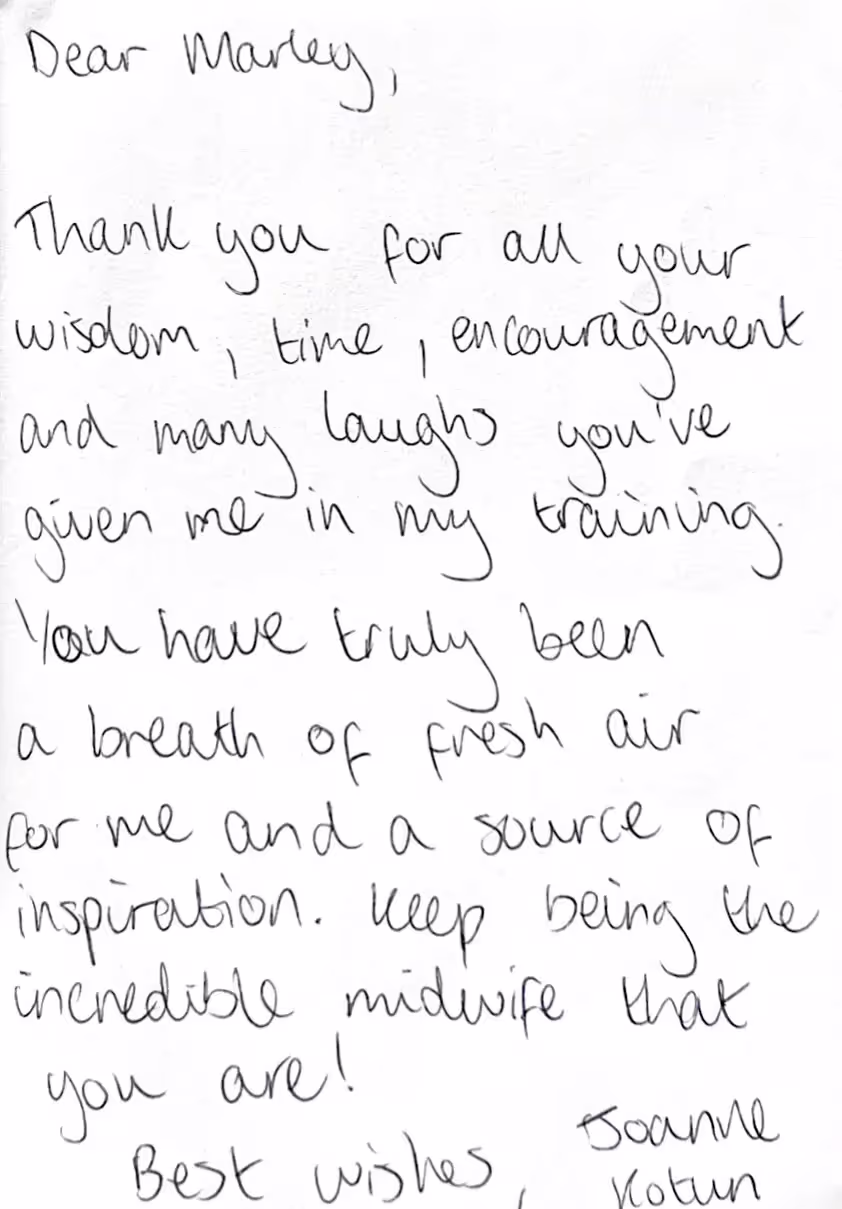 Dear Marley,
Thank you for all your
wisdom, time, encouragement
and many laughs you've
given me in my training.
You have truly been
a breath of fresh air
for me and a source of
inspiration. Keep being the
incredible midwife that
you are!
Best wishes, Joanne
Kotun